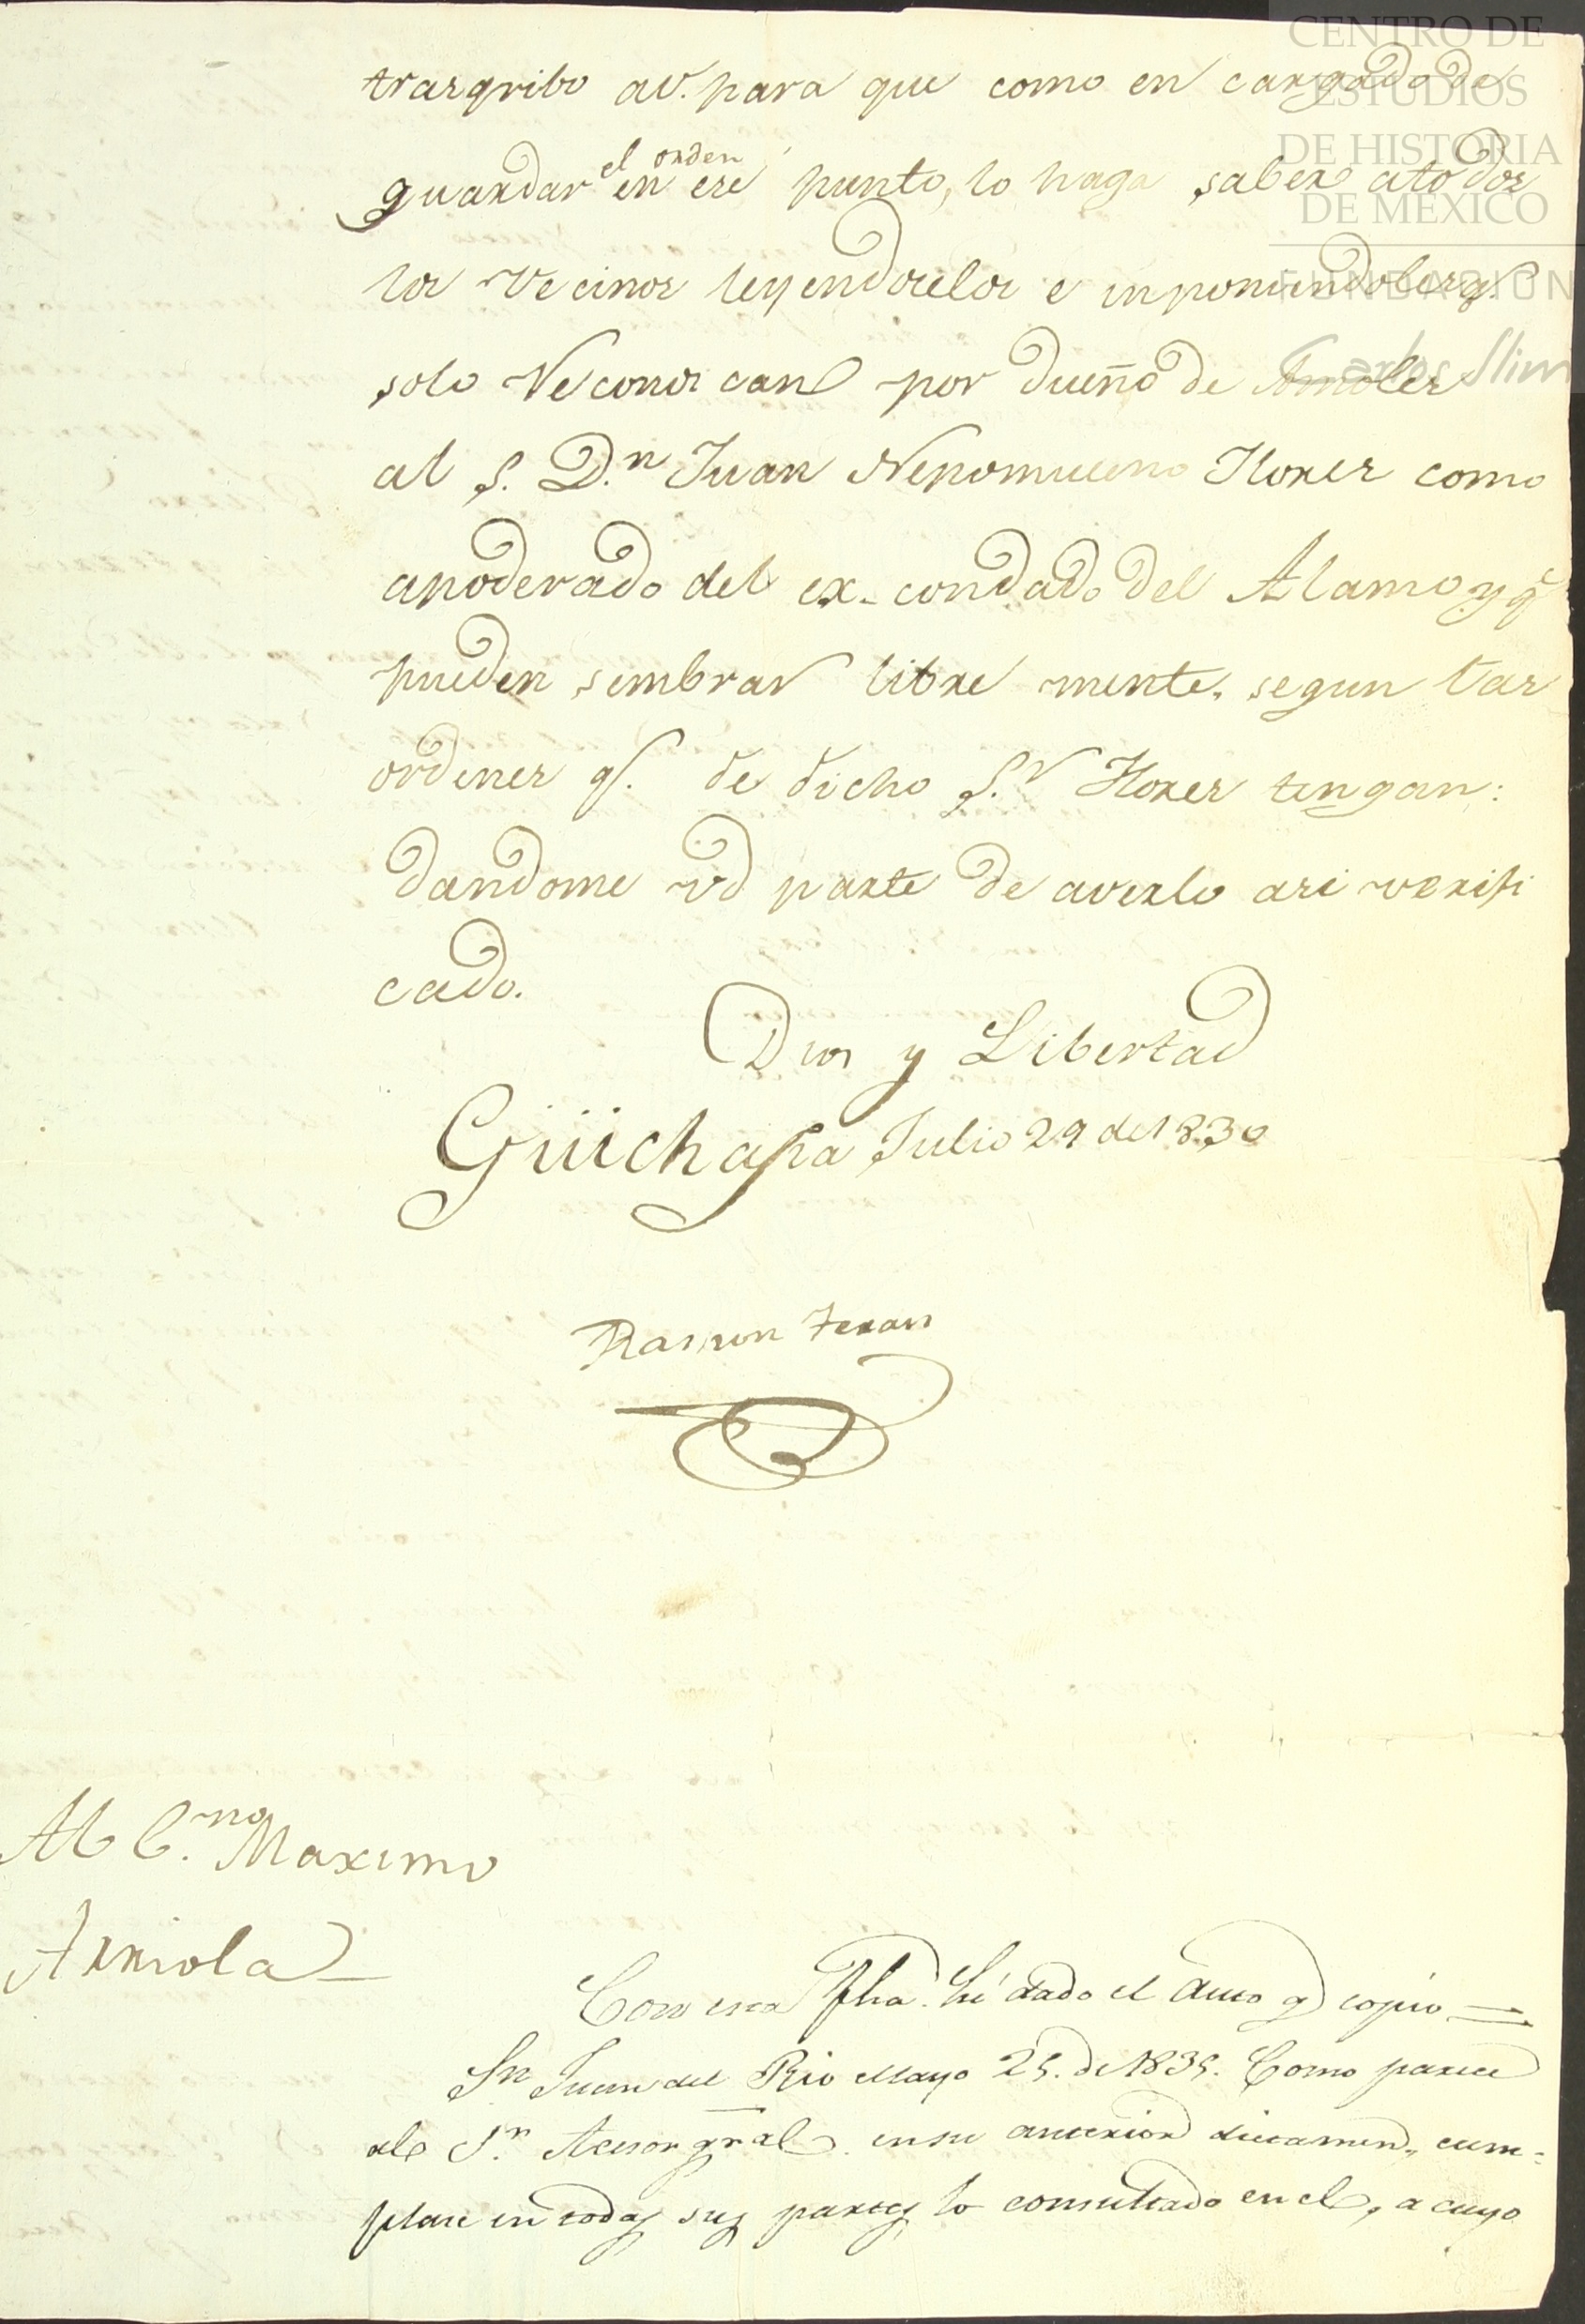 CENTRO DE
ESTUDIOS
DE HISTORIA
DE MEXICO
FUNDACION
Carlos Slim
trasqribo av. para que como en cargado de
guardar el orden en ese punto, lo haga saber atodos
los Vecinos leyendoselos e inponiendoles q.
solo Reconoscan por dueño de Amoles
al S. D.n Juan Nepomuceno Flores como
apoderado del ex-condado del Alamo y q.e
pueden sembrar libre mente, segun las
ordenes q. de dicho S.r Flores tengan:
dandome vd parte de averlo asi verifi
cado.
Dios y Libertad
Güichapa Julio 29 de 1830
Ramon Teran
Al C.no Maximo
Arriola
Con esta fha. hé dado el auto q copio
Sn Juan del Rio Mayo 25. de 1835. Como parece
al S.r Asesor gral en su anterior dictamen, cum-
plase en todas sus partes lo consultado en el, a cuyo